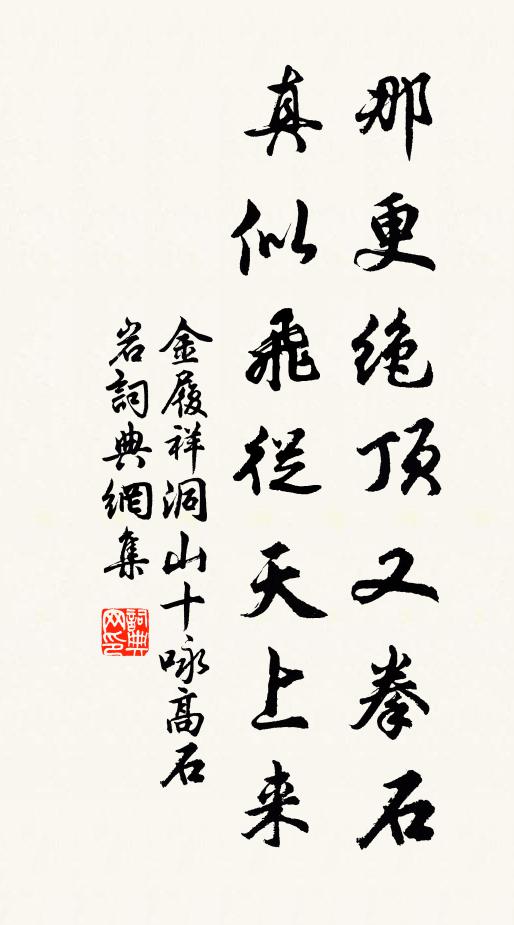 那更绝顶又拳石
真似飛從天上来
金履祥洞山十咏高石
岩詞典網集
詞典
网印